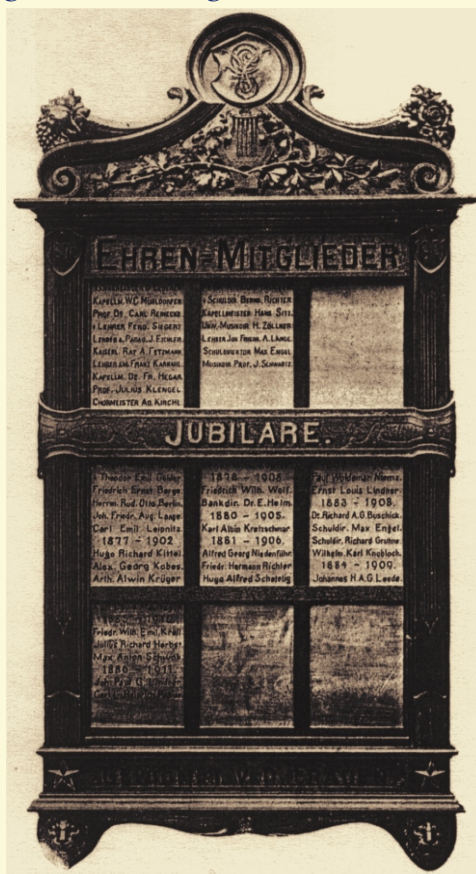 EHREN=MITGLIEDER
KAPELLM. W.C. MÜHLDORFER
PROF. DR. CARL REINECKE
LEHRER FERD. SIEGERT
LEHRER A. PÄDAG. J. EICHLER
KAISERL. RAT A. TETZMANN
LEHRER EM. FRANZ
KAPELLM. DR. FR. HEGAR
PROF. JULIUS KLENGEL
CHORMEISTER AD. KIRCHL
SCHULDIR. BERNH. RICHTER
KAPELLMEISTER HANS SITT.
UNIV.-MUSIKDIR. H. ZÖLLNER
LEHRER JOH. FRIEDR. A. LANGE.
SCHULDIREKTOR MAX ENGEL
MUSIKDIR. PROF. J. SCHWARTZ.
JUBILARE.
Theodor Emil
Friedrich Ernst Berge.
Herrm. Rud. Otto Berlin.
Joh. Friedr. Aug. Lange
Carl Emil Leipnitz
1877 - 1902
Hugo Richard Kittel
Alex. Georg Kobes.
Arth. Alwin Krüger
1878 - 1903
Friedrich Wilh. Wolf.
Bankdir. Dr. E. Heim.
1880 - 1905.
Karl Albin Kretzschmar
1881 - 1906.
Alfred Georg Niedenführ.
Friedr. Hermann Richter
Hugo Alfred
Paul Woldemar
Ernst Louis Lindner.
1883 - 1908.
Dr. Richard A.G. Buschick.
Schuldir. Max Engel.
Schuldir. Richard
Wilhelm. Karl Knobloch.
1884 - 1909.
Johannes H.A.G. Leede.
Friedr. Wilh. Emil Kroll
Julius Richard Herbst.
Max Anton
1886 - 1911.
Joh. Paul G. Lindner